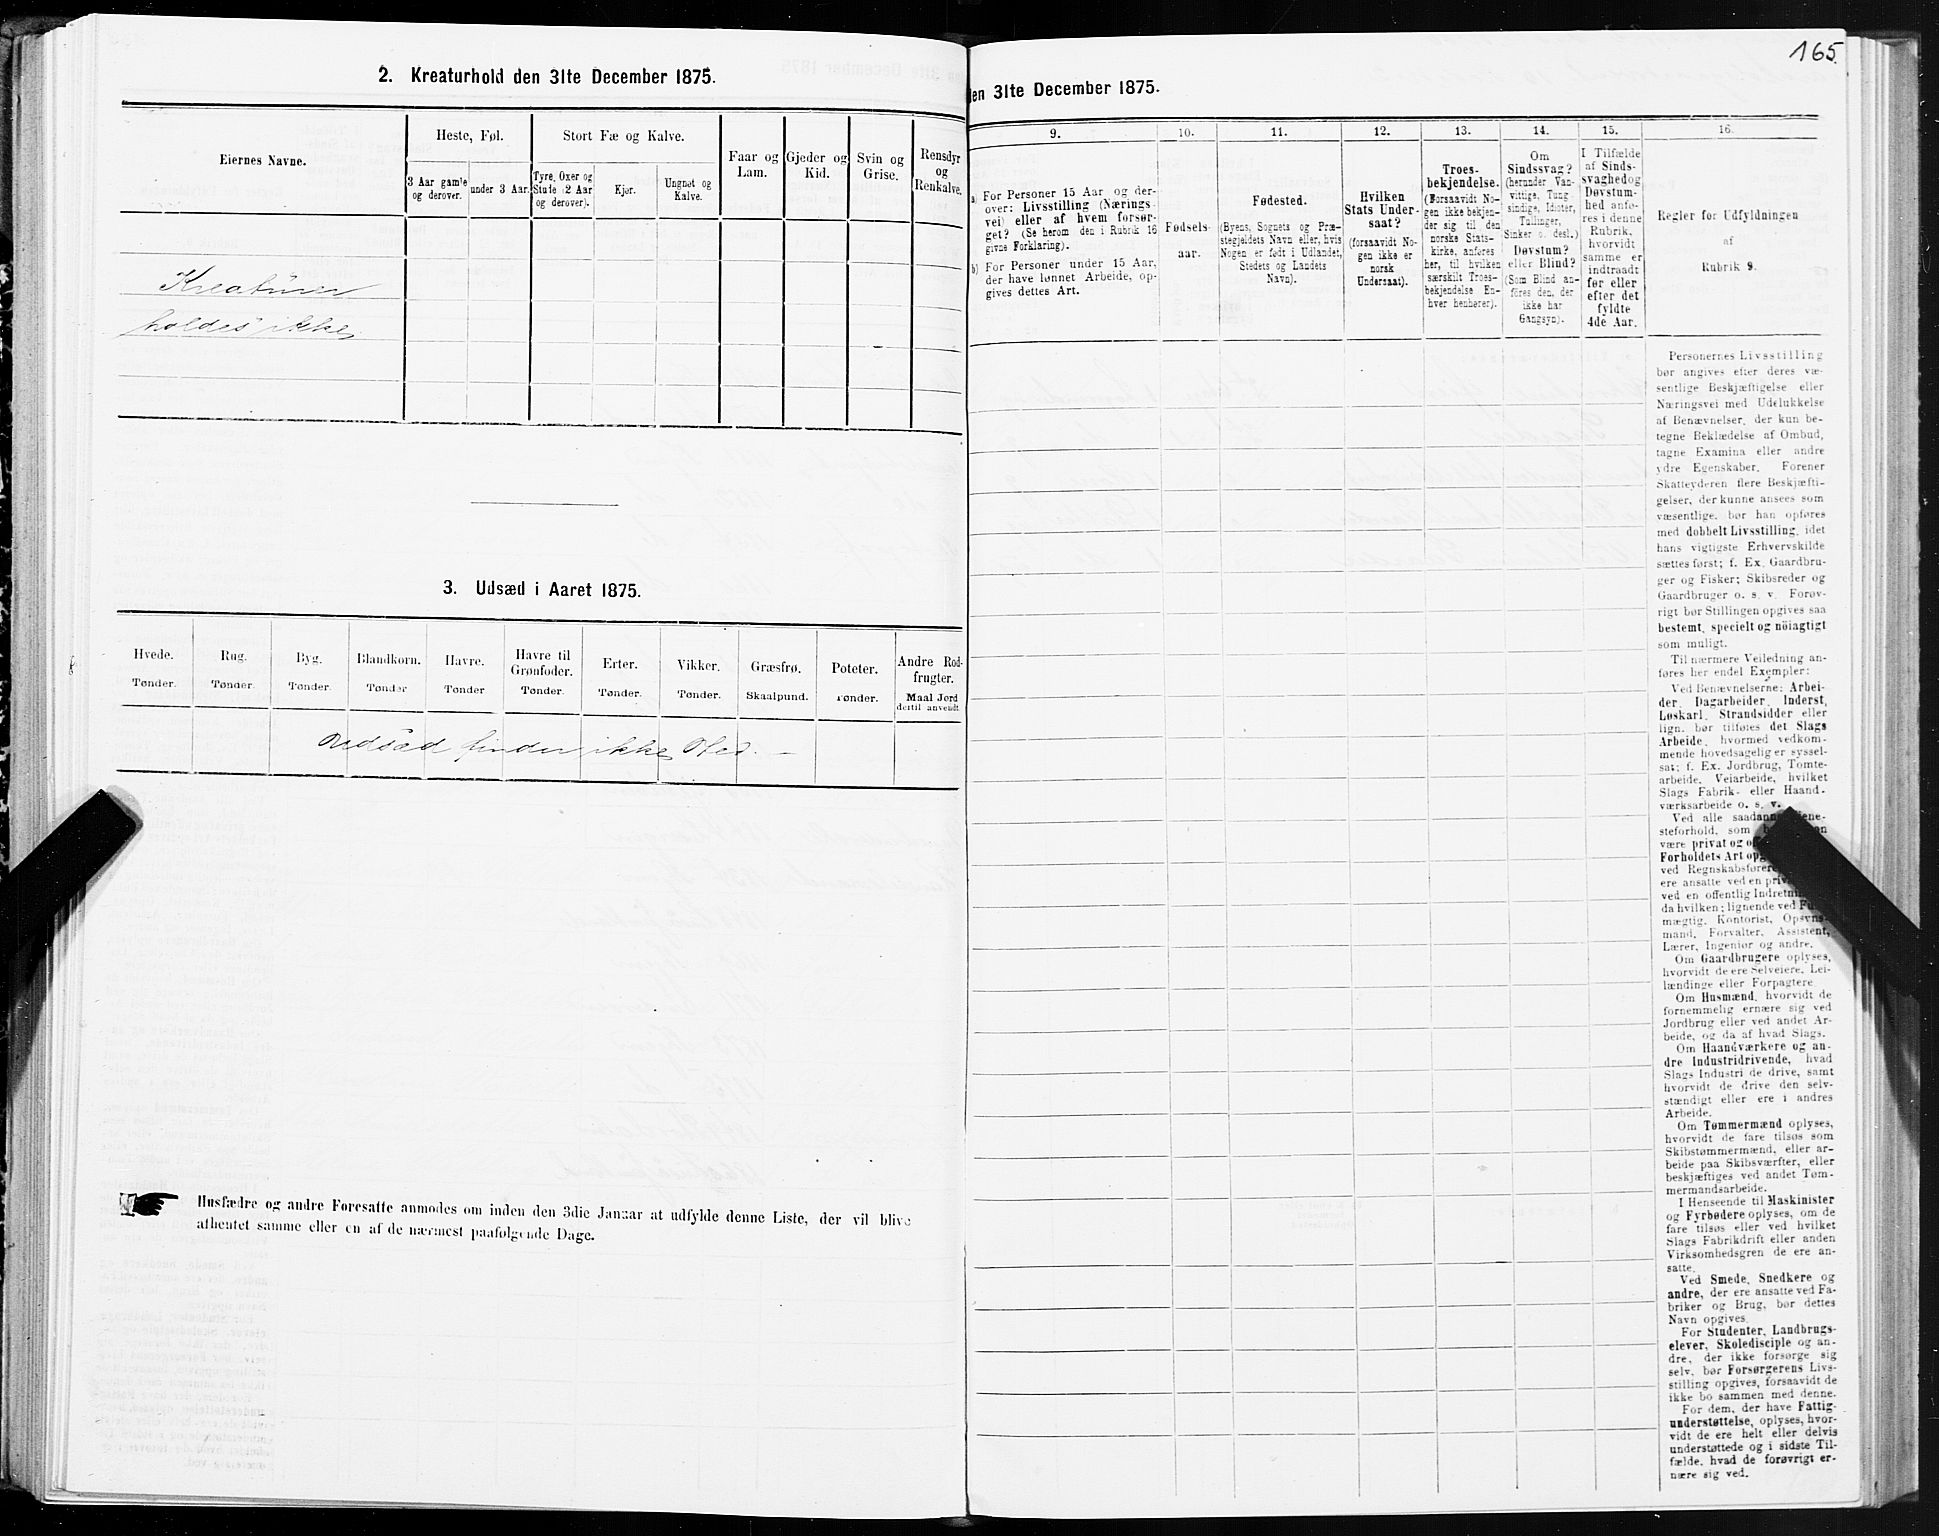 2. Kreaturhold den 31te December 1875.
Eiernes Navne.
Heste, Føl.
Stort Fæ og Kalve.
Faar og
Lam.
Gjeder og
Kid.
Svin og
Grise.
Rensdyr
og
Renkalve.
3 Aar gamle
og derover.
under 3 Aar.
Tyre, Oxer og
Stude (2 Aar
og derover).
Kjør.
Ungnøt og
Kalve.
Kreaturer
holdes ikke
3. Udsæd i Aaret 1875.
Hvede.
Rug.
Byg.
Blandkorn.
Havre.
Havre til
Grønfoder.
Erter.
Vikker.
Græsfrø.
Poteter.
Andre Rod-
frugter.
Tønder.
Tønder.
Tønder.
Tønder
Tønder
Tønder.
Tønder.
Tønder.
Skaalpund.
Tønder.
Maal Jord
dertil anvendt.
Udsæd finder ikke Sted. –
Husfædre og andre Foresatte anmodes om inden den 3die Januar at udfylde denne Liste, der vil blive
afhentet samme eller en af de nærmest paafølgende Dage.
165.
den 31te December 1875.
9.
10.
11.
12.
13.
14.
15.
16.
a) For Personer 15 Aar og der-
over: Livsstilling (Nærings-
vei) eller af hvem forsør-
get? (Se herom den i Rubrik 16
givne Forklaring).
b) For Personer under 15 Aar,
der have lønnet Arbeide, op-
gives dettes Art.
Fødsels-
aar.
Fødested.
(Byens, Sognets og Præ-
stegjeldets Navn eller, hvis
Nogen er født i Udlandet,
Stedets og Landets
Navn).
Hvilken
Stats Under-
saat?
(forsaavidt No-
gen ikke er
norsk
Undersaat).
Troes-
bekjendelse.
(Forsaavidt No-
gen ikke bekjen-
der sig til den
norske Stats-
kirke, anføres
her, til hvilken
særskilt Troes-
bekjendelse En-
hver henhører).
Om
Sindssvag?
(herunder Van-
vittige, Tung-
sindige, Idioter,
Tullinger,
Sinker o. desl.)
Døvstum?
eller Blind?
(Som Blind an-
føres den, der
ikke har
Gangsyn).
I Tilfælde
af Sinds-
svaghed og
Døvstum-
hed anfø-
res i denne
Rubrik,
hvorvidt
samme er
indtraadt
før eller
efter det
fyldte
4de Aar.
Regler for Udfyldningen
af
Rubrik 9.
Personernes Livsstilling
bør angives efter deres væ-
sentlige Beskjæftigelse eller
Næringsvei med Udelukkelse
af Benævnelser, der kun be-
tegne Beklædelse af Ombud,
tagne Examina eller andre
ydre Egenskaber. Forener
Skatteyderen flere Beskjæfti-
gelser, der kunne ansees som
væsentlige, bør han opføres
med dobbelt Livsstilling, idet
hans vigtigste Erhvervskilde
sættes først; f. Ex. Gaardbru-
ger og Fisker; Skibsreder og
Gaardbruger o. s. v. Forøv-
rigt bør Stillingen opgives saa
bestemt, specielt og nøiagtigt
som muligt.
Til nærmere Veiledning an-
føres her endel Exempler:
Ved Benævnelserne: Arbei-
der, Dagarbeider, Inderst,
Løskarl, Strandsidder eller
lign. bør tilføies det Slags
Arbeide, hvormed vedkom-
mende hovedsagelig er syssel-
sat; f. Ex. Jordbrug, Tomte-
arbeide, Veiarbeide, hvilket
Slags Fabrik- eller Haand-
værksarbeide o. s. v.
Ved alle saadanne Tjene-
steforhold, som
være privat og
Forholdets Art
ved Regnskabsførere,
ere ansatte ved en
ved en offentlig Indretning
da hvilken; lignende ved
mægtig, Kontorist, Opsyns-
mand, Forvalter, Assistent,
Lærer, Ingeniør og andre.
Om Gaardbrugere oplyses,
hvorvidt de ere Selveiere, Lei-
lændinge eller Forpagtere.
Om Husmænd, hvorvidt de
fornemmelig ernære sig ved
Jordbrug eller ved andet Ar-
beide, og da af hvad Slags.
Om Haandværkere og an-
dre Industridrivende, hvad
Slags Industri de drive, samt
hvorvidt de drive den selv-
stændigt eller ere i andres
Arbeide.
Om Tømmermænd oplyses,
hvorvidt de fare tilsøs som
Skibstømmermænd, eller ar-
beide paa Skibsværfter, eller
beskjæftiges ved andet Tøm-
mermandsarbeide.
I Henseende til Maskinister
og Fyrbødere oplyses, om de
fare tilsøs eller ved hvilket
Slags Fabrikdrift eller anden
Virksomhedsgren de ere an-
satte.
Ved Smede, Snedkere og
andre, der ere ansatte ved Fa-
briker og Brug, bør dettes
Navn opgives.
For Studenter, Landbrugs-
elever, Skoledisciple og an-
dre, der ikke forsørge sig
selv, bør Forsørgerens Livs-
stilling opgives, forsaavidt de
ikke bo sammen med denne.
For dem, der have Fattig-
understøttelse, oplyses, hvor-
vidt de ere helt eller delvis
understøttede og i sidste Til-
fælde, hvad de forøvrigt er-
nære sig ved.